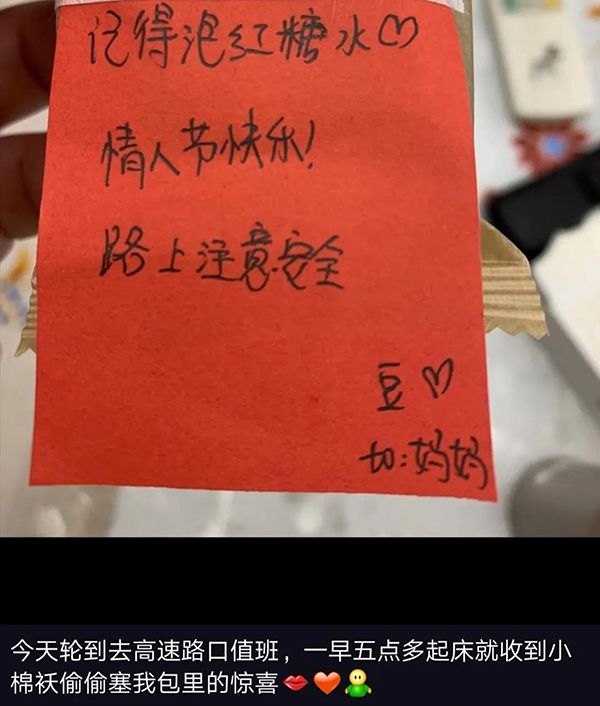 记得泡红糖水♡
情人节快乐!
路上注意安全
豆♡
to:妈妈
今天轮到去高速路口值班，一早五点多起床就收到小
棉袄偷偷塞我包里的惊喜💋❤️